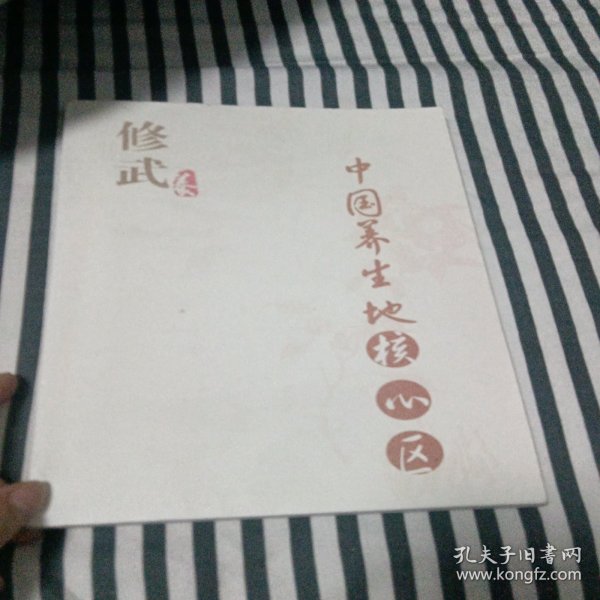 修武
中国养生地核心区
孔夫子旧书网
www.kongfz.com